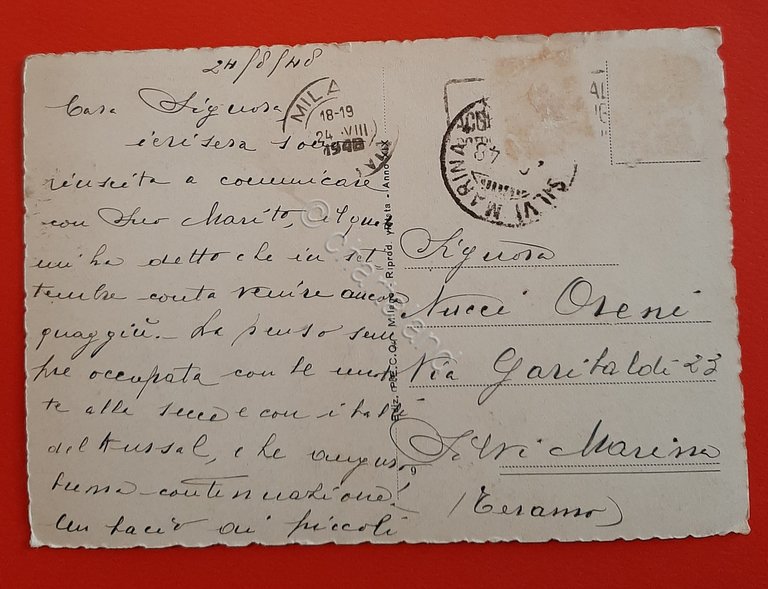 24/8/48
Cara Signora,
ierisera son
riuscita a comunicare
con Suo Marito, il quale
mi ha detto che in set
tembre conta venire ancora
quaggiù. - La penso sem
pre occupata con le
te alle secce e con i balli
del Kursal, e le auguro
buona continuazione!
Un bacio ai piccoli
MILA
18-19
24.VIII
1948
Ediz. P.E.C.O. - Milano - Riprod. vietata - Anno XIX
SILVI MARINA
Signora
Nucci Oreni
Via Garibaldi 23
Silvi Marina
(Teramo)